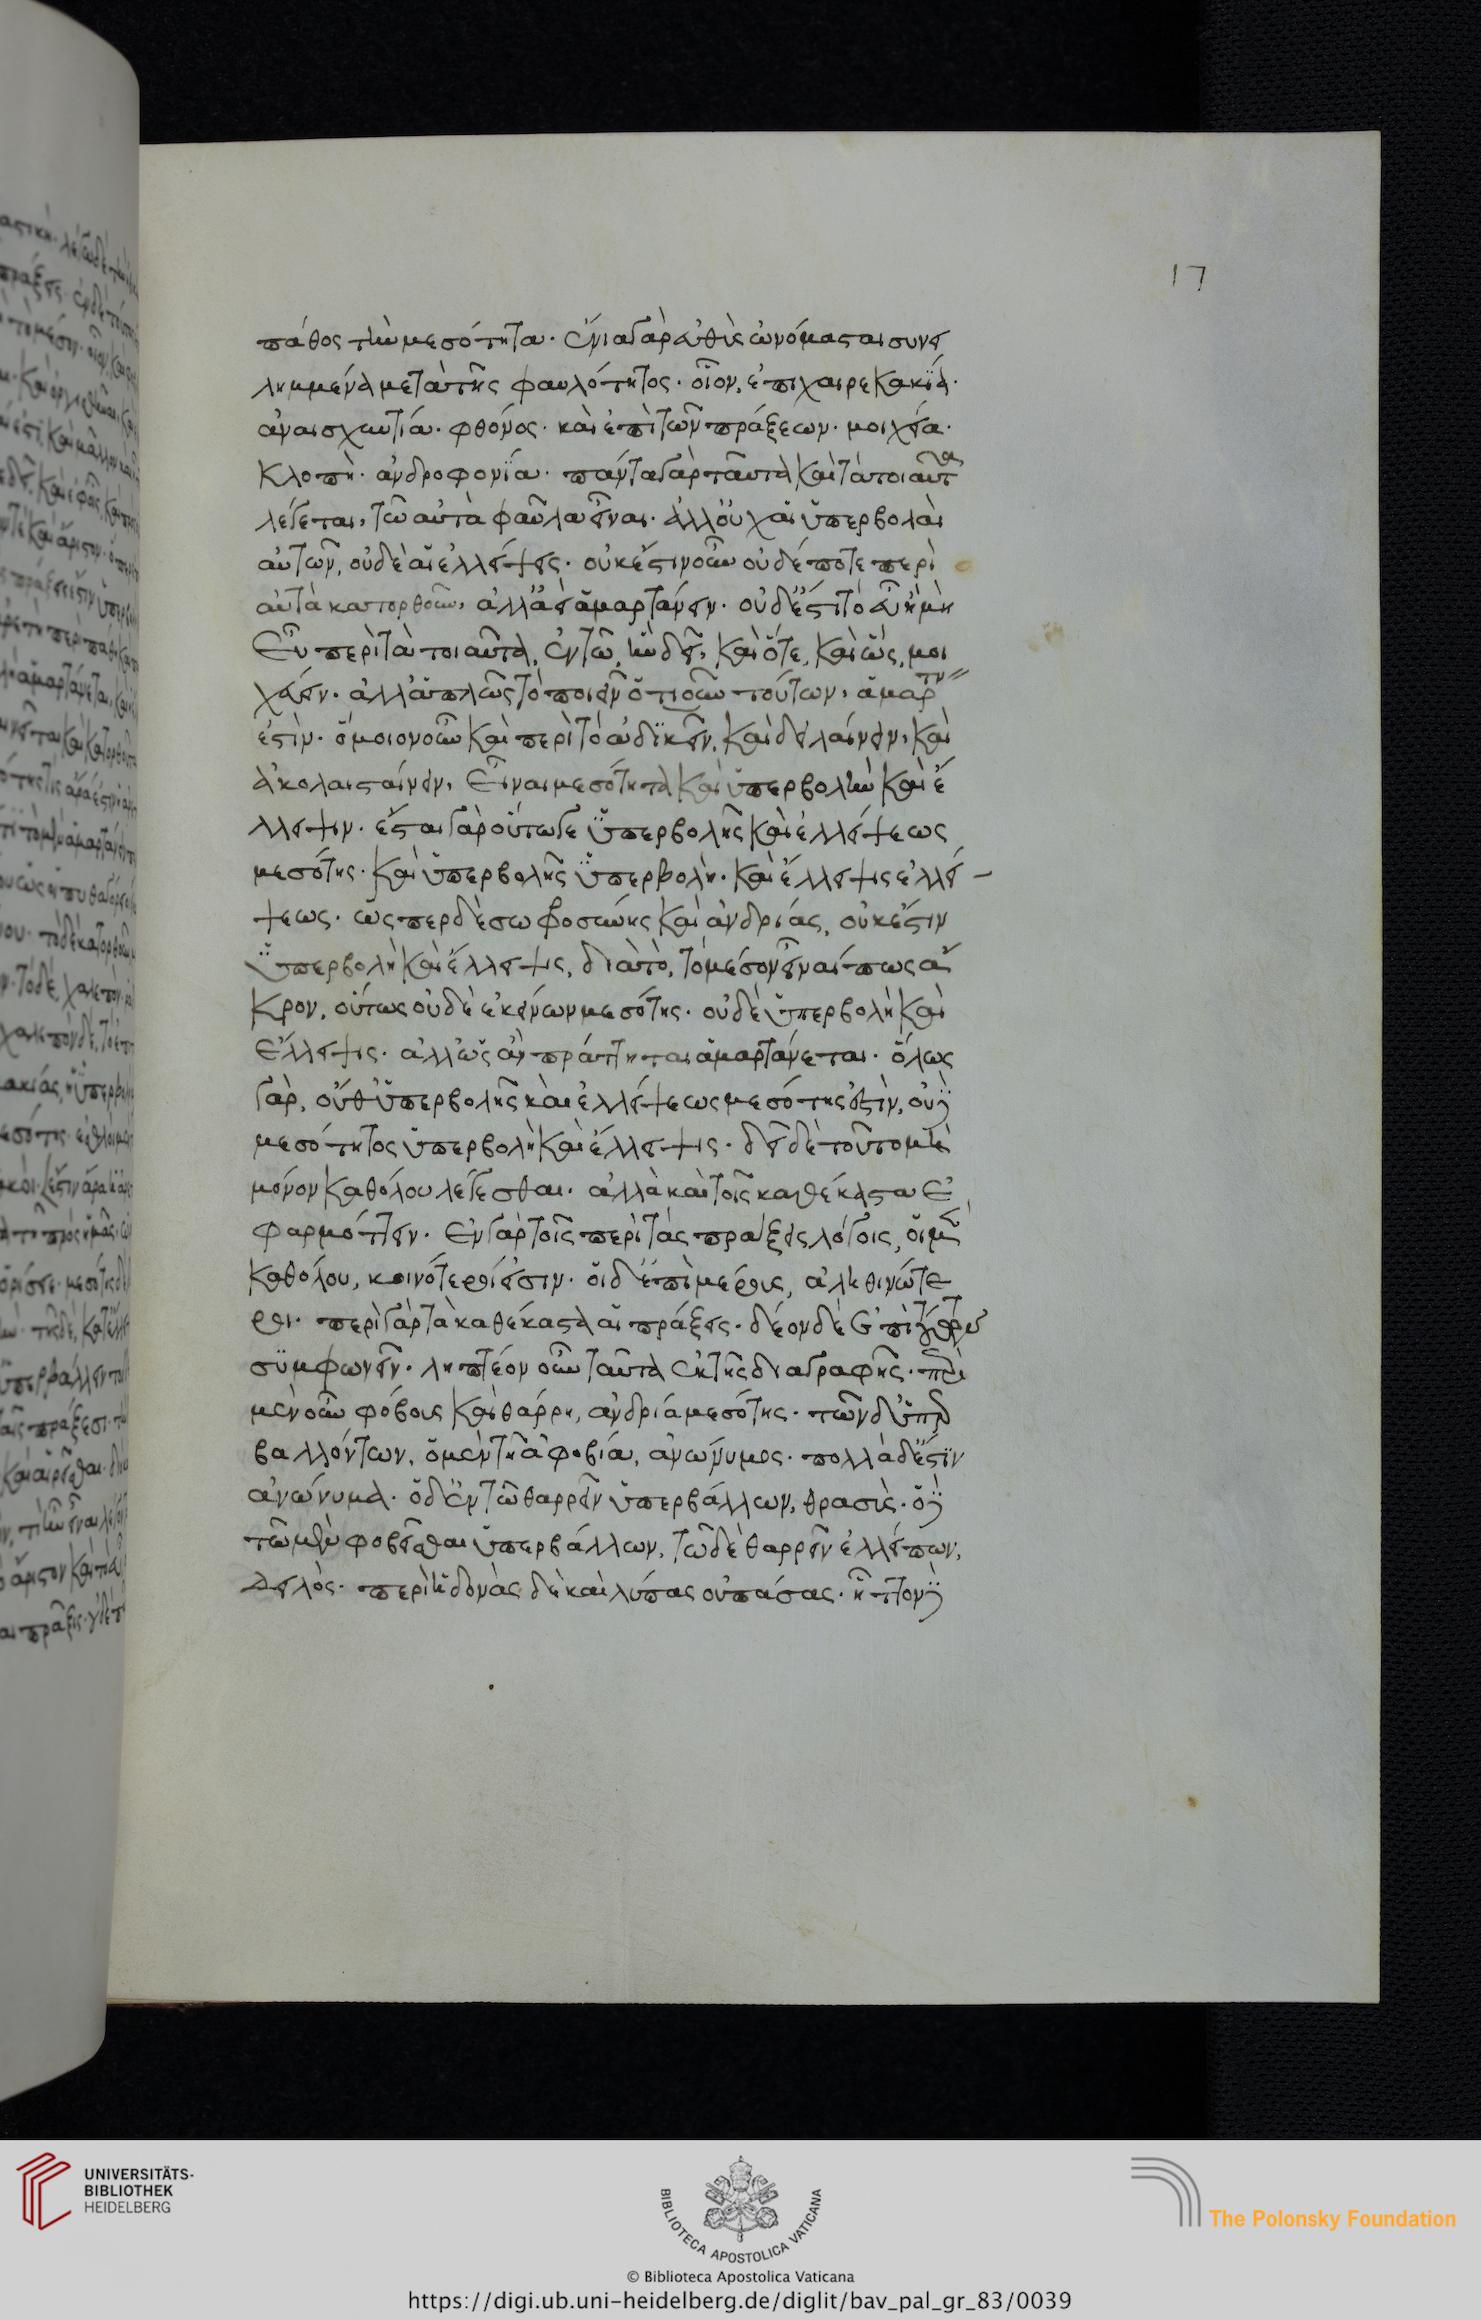 17
πάθος τὴν μεσότητα· ἔνια γὰρ εὐθὺς ὠνόμασται συνει
λημμένα μετὰ τῆς φαυλότητος· οἷον, ἐπιχαιρεκακία·
ἀναισχυντία· φθόνος· καὶ ἐπὶ τῶν πράξεων· μοιχεία·
κλοπὴ· ἀνδροφονία· πάντα γὰρ ταῦτα καὶ τὰ τοιαῦτα
λέγεται, τῶ αὐτὰ φαῦλα εἶναι· ἀλλ' οὐχ αἱ ὑπερβολαὶ
αὐτῶν, οὐδὲ αἱ ἐλλείψεις· οὐκ ἔστιν οὖν οὐδέποτε περὶ
αὐτὰ κατορθοῦν, ἀλλ' ἀεὶ ἁμαρτάνειν· οὐδ' ἔστι τὸ εὖ ἢ μὴ
εὖ περὶ τὰ τοιαῦτα, ἐν τῶ, ἣν δεῖ, καὶ ὅτε, καὶ ὥς, μοι
χεύειν· ἀλλ' ἁπλῶς τὸ ποιεῖν ὁτιοῦν τούτων, ἁμαρτάνειν
ἐστὶν· ὅμοιον οὖν καὶ περὶ τὸ ἀδικεῖν, καὶ δειλαίνειν, καὶ
ἀκολασταίνειν, εἶναι μεσότητα καὶ ὑπερβολὴν καὶ ἔ
λλειψιν· ἔσται γὰρ οὕτω γε ὑπερβολῆς καὶ ἐλλείψεως
μεσότης· καὶ ὑπερβολῆς ὑπερβολὴ· καὶ ἔλλειψις ἐλλεί-
ψεως· ὥσπερ δὲ σωφροσύνης καὶ ἀνδρίας, οὐκ ἔστιν
ὑπερβολὴ καὶ ἔλλειψις, διὰ τὸ, τὸ μέσον εἶναί πως ἄ
κρον, οὕτως οὐδὲ ἐκείνων μεσότης· οὐδὲ ὑπερβολὴ καὶ
ἔλλειψις· ἀλλ' ὡς ἂν πράττηται ἁμαρτάνεται· ὅλως
γὰρ, οὔθ' ὑπερβολῆς καὶ ἐλλείψεως μεσότης ἐστὶν, οὔτε
μεσότητος ὑπερβολὴ καὶ ἔλλειψις· δεῖ δὲ τοῦτο μὴ
μόνον καθόλου λέγεσθαι· ἀλλὰ καὶ τοῖς καθέκαστα ἐ
φαρμόττειν· ἐν γὰρ τοῖς περὶ τὰς πράξεις λόγοις, οἱ μὲν
καθόλου, κοινότεροί εἰσιν· οἱ δ' ἐπὶ μέρους, ἀληθινώτε
ροι· περὶ γὰρ τὰ καθέκαστα αἱ πράξεις· δέον δὲ ἐπὶ τούτων
συμφωνεῖν· ληπτέον οὖν ταῦτα ἐκ τῆς διαγραφῆς· περὶ
μὲν οὖν φόβους καὶ θάρρη, ἀνδρία μεσότης· τῶν δ' ὑπερ
βαλλόντων, ὁ μὲν τῆ ἀφοβία, ἀνώνυμος· πολλὰ δ' ἔστιν
ἀνώνυμα· ὁ δ' ἐν τῶ θαρρεῖν ὑπερβάλλων, θρασὺς· ὁ δὲ
τῶ μὲν φοβεῖσθαι ὑπερβάλλων, τῶ δὲ θαρρεῖν ἐλλείπων,
δειλὸς· περὶ ἡδονὰς δὲ καὶ λύπας οὐ πάσας· ἧττον δὲ
UNIVERSITÄTS-
BIBLIOTHEK
HEIDELBERG
BIBLIOTECA APOSTOLICA VATICANA
The Polonsky Foundation
© Biblioteca Apostolica Vaticana
https://digi.ub.uni-heidelberg.de/diglit/bav_pal_gr_83/0039